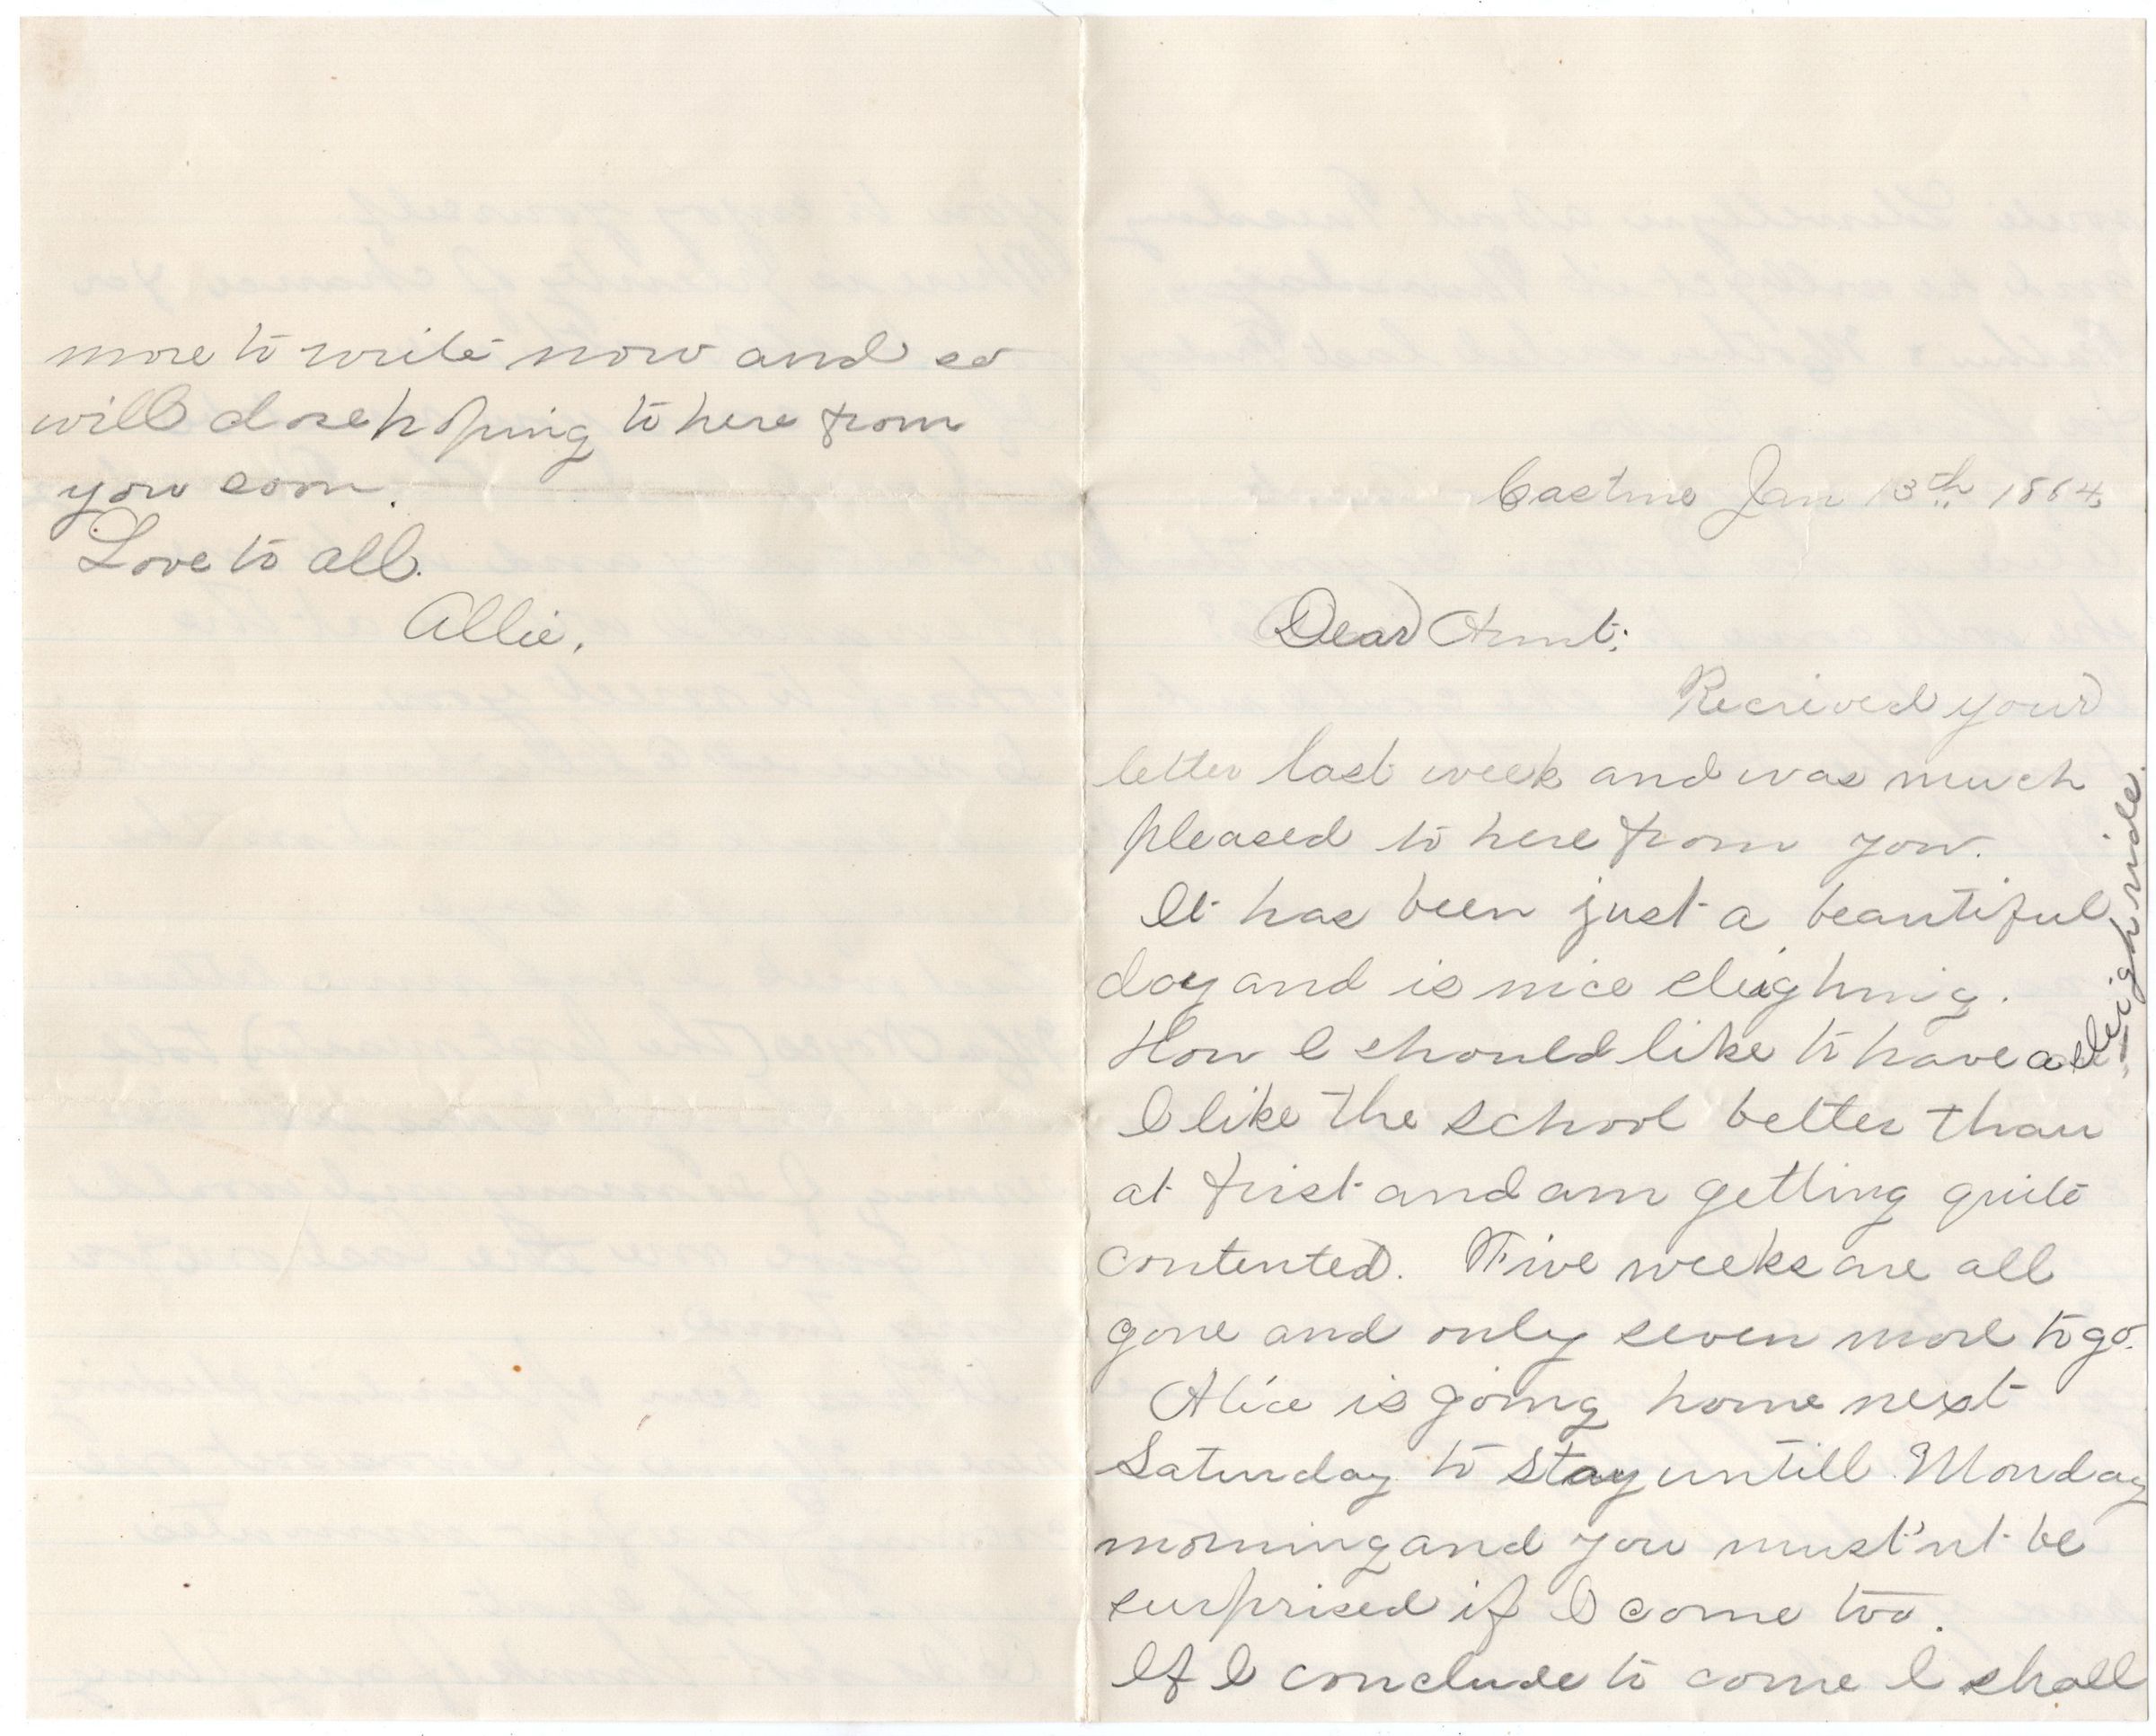 Castine Jan 13th 1884
Dear Aunt:
Recieved your
letter last week and was much
pleased to here from you.
It has been just a beautiful
day and is nice sleighing.
How I should like to have a sleigh ride.
I like the school better than
at first and am getting quite
contented. Five weeks are all
gone and only seven more to go.
Alice is going home next
Saturday to stay untill Monday
morning and you must'nt be
surprised if I come too.
If I conclude to come I shall
more to write now and so
will close hoping to here from
you soon.
Love to all.
Allie.